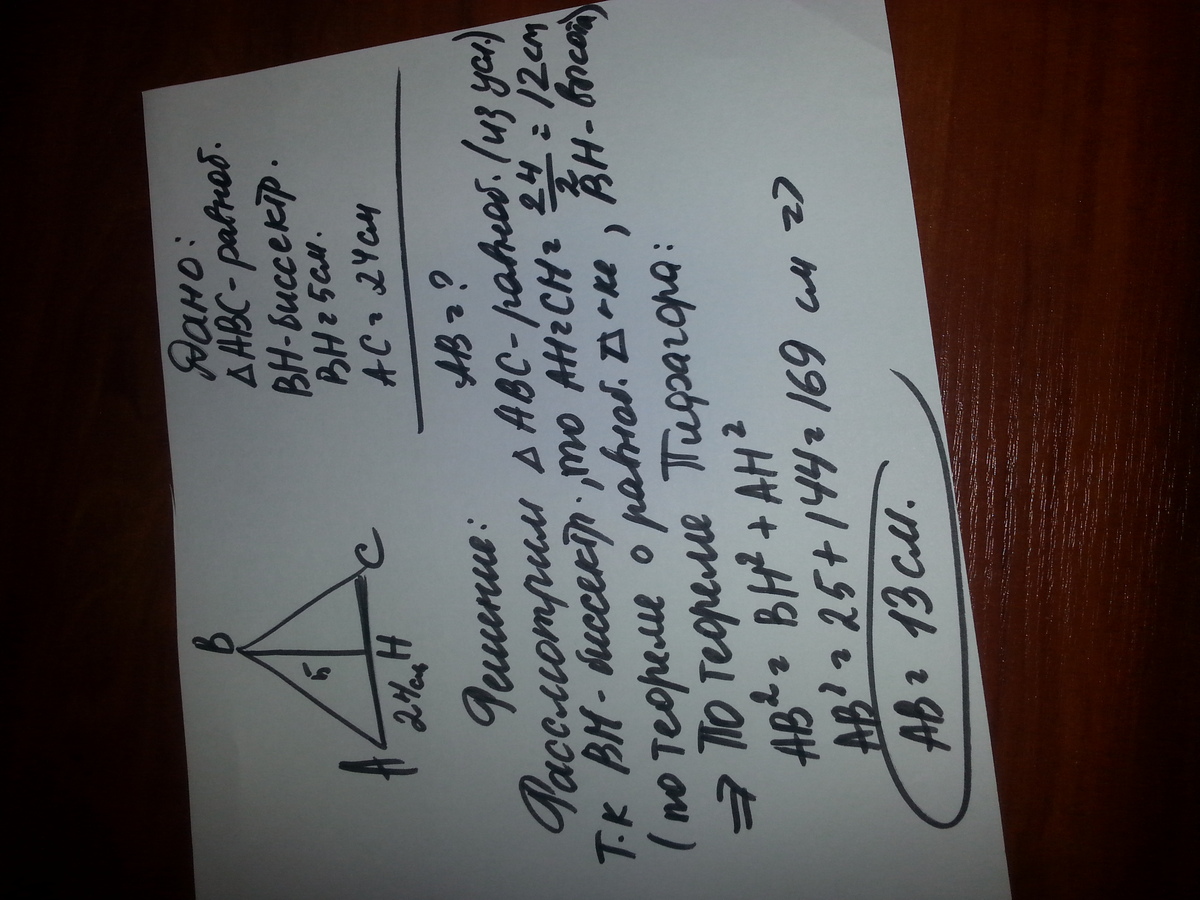 B
5
A
H
C
24см
Дано:
△ABC - равноб.
BH - биссектр.
BH = 5 см.
AC = 24 см
AB = ?
Решение:
Рассмотрим △ABC - равноб. (из усл.)
т.к BH - биссектр., то AH = CH = 24/2 = 12 см
(по теореме о равноб. △-ке, BH - высот)
=> По теореме Пифагора:
AB² = BH² + AH²
AB² = 25 + 144 = 169 см =>
AB = 13 см.